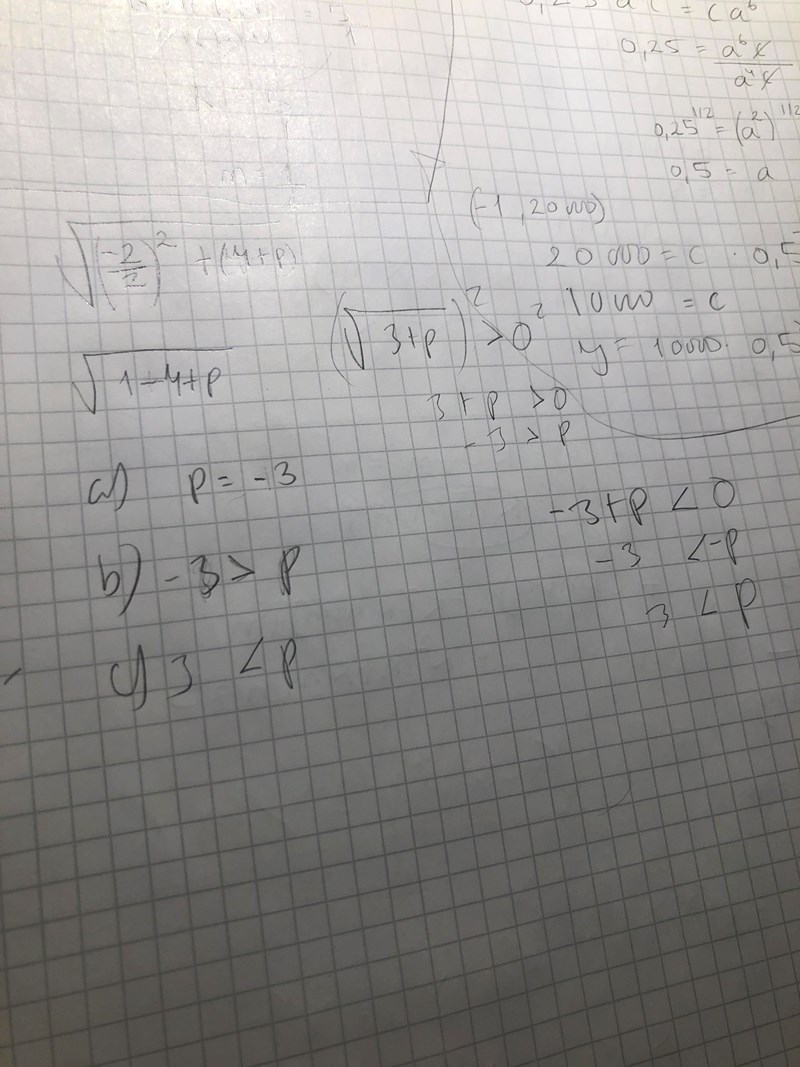 = c a⁶
0,25 = a⁶c / a⁴c
0,25^1/2 = (a²)^1/2
0,5 = a
(-1, 20000)
20000 = c · 0,5
10000 = c
y = 10000 · 0,5
√((-2/2)² + (-4+p))
(√3+p)² > 0²
√1-4+p
3+p > 0
-3 > p
a) p = -3
b) -3 > p
c) 3 < p
-3+p < 0
-3 < -p
3 < p